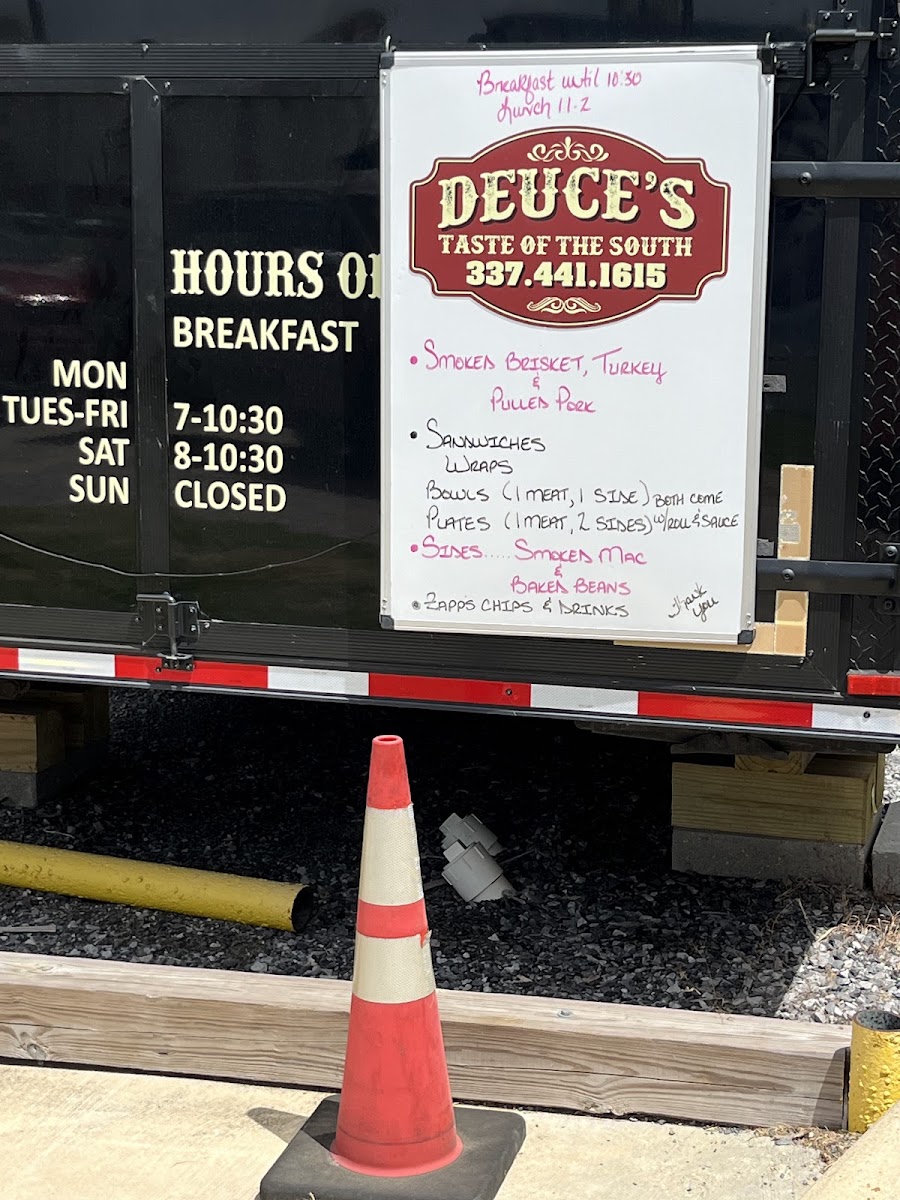 Breakfast until 10:30
Lunch 11-2
DEUCE'S
TASTE OF THE SOUTH
337.441.1615
• SMOKED BRISKET, TURKEY
&
PULLED PORK
• SANDWICHES
WRAPS
BOWLS (1 MEAT, 1 SIDE) BOTH COME
PLATES (1 MEAT, 2 SIDES) W/ROLL & SAUCE
• SIDES..... SMOKED MAC
&
BAKED BEANS
• ZAPP'S CHIPS & DRINKS
Thank
you
HOURS O
BREAKFAST
MON
TUES-FRI 7-10:30
SAT 8-10:30
SUN CLOSED